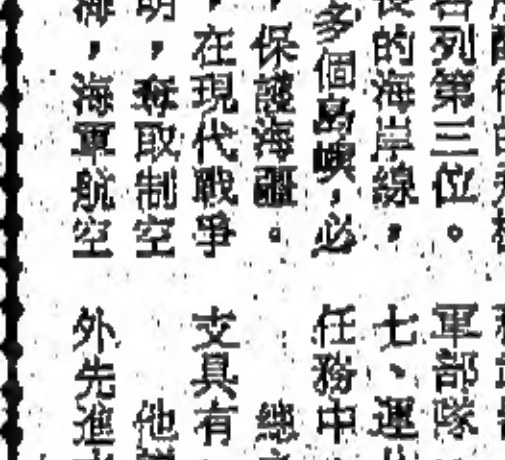 名列第三位。
的海岸線，
多個島嶼，必
，保護海疆。
，在現代戰爭
明，奪取制空
海，海軍航空
軍部隊
七、運
任務中
總
支具有
他
外先進